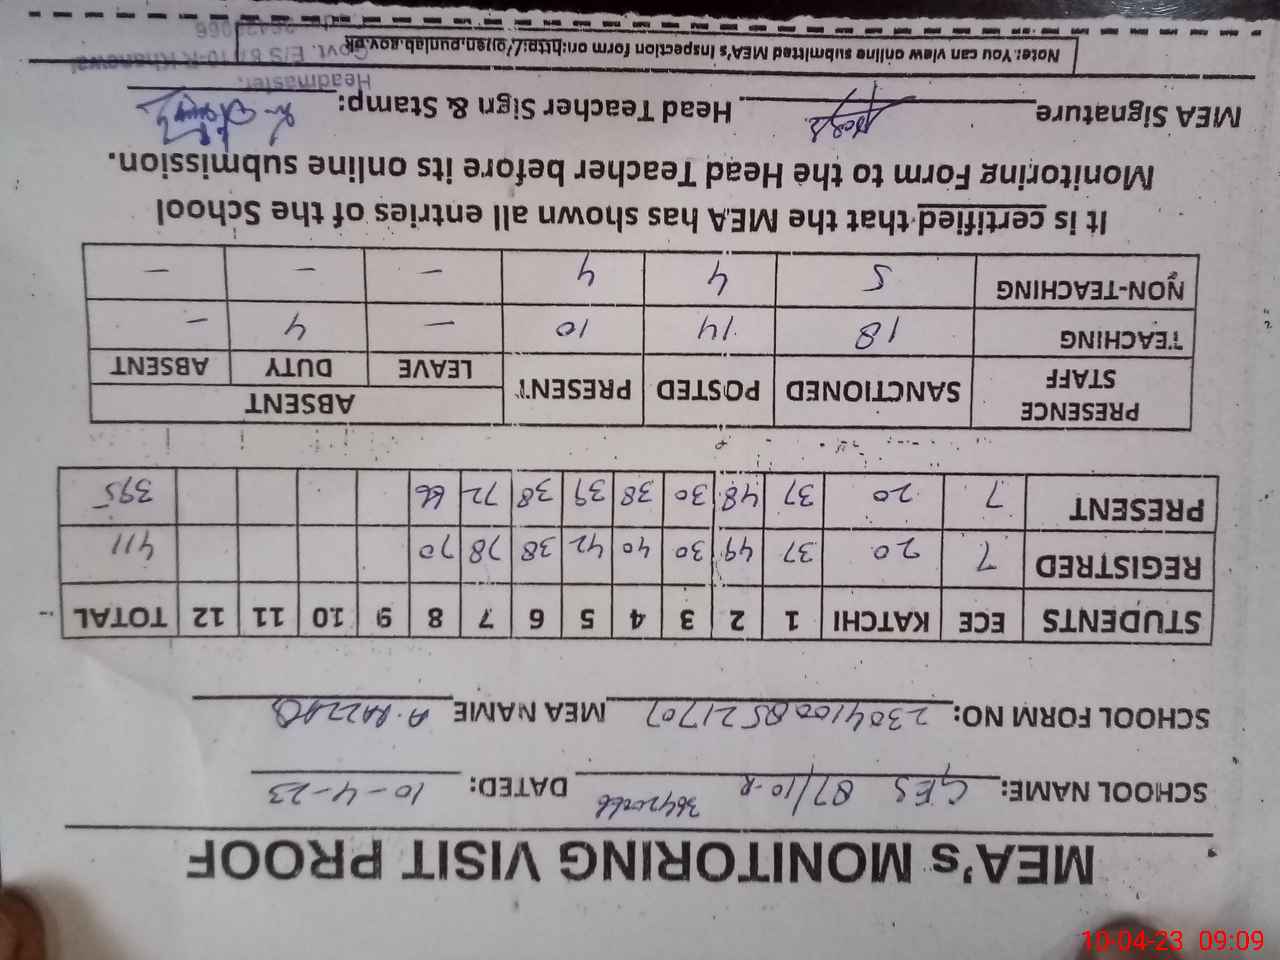 MEA's MONITORING VISIT PROOF
SCHOOL NAME: GES 87/10-R DATED: 10-4-23
SCHOOL FORM NO: MEA NAME A. RAZZAQ
STUDENTS ECE KATCHI 1 2 3 4 5 6 7 8 9 10 11 12 TOTAL
REGISTRED 7 20 37 49 30 40 42 38 78 70 411
PRESENT 7 20 37 48 30 38 39 38 72 66 395
PRESENCE STAFF SANCTIONED POSTED PRESENT ABSENT
LEAVE DUTY ABSENT
TEACHING 18 14 10 – 4 –
NON-TEACHING 5 4 4 – – –
It is certified that the MEA has shown all entries of the School
Monitoring Form to the Head Teacher before its online submission.
MEA Signature Head Teacher Sign & Stamp:
Headmaster
Govt. E/S 87/10-R Khanewal
Note: You can view online submitted MEA's inspection form on:http://open.punjab.gov.pk
10-04-23 09:09